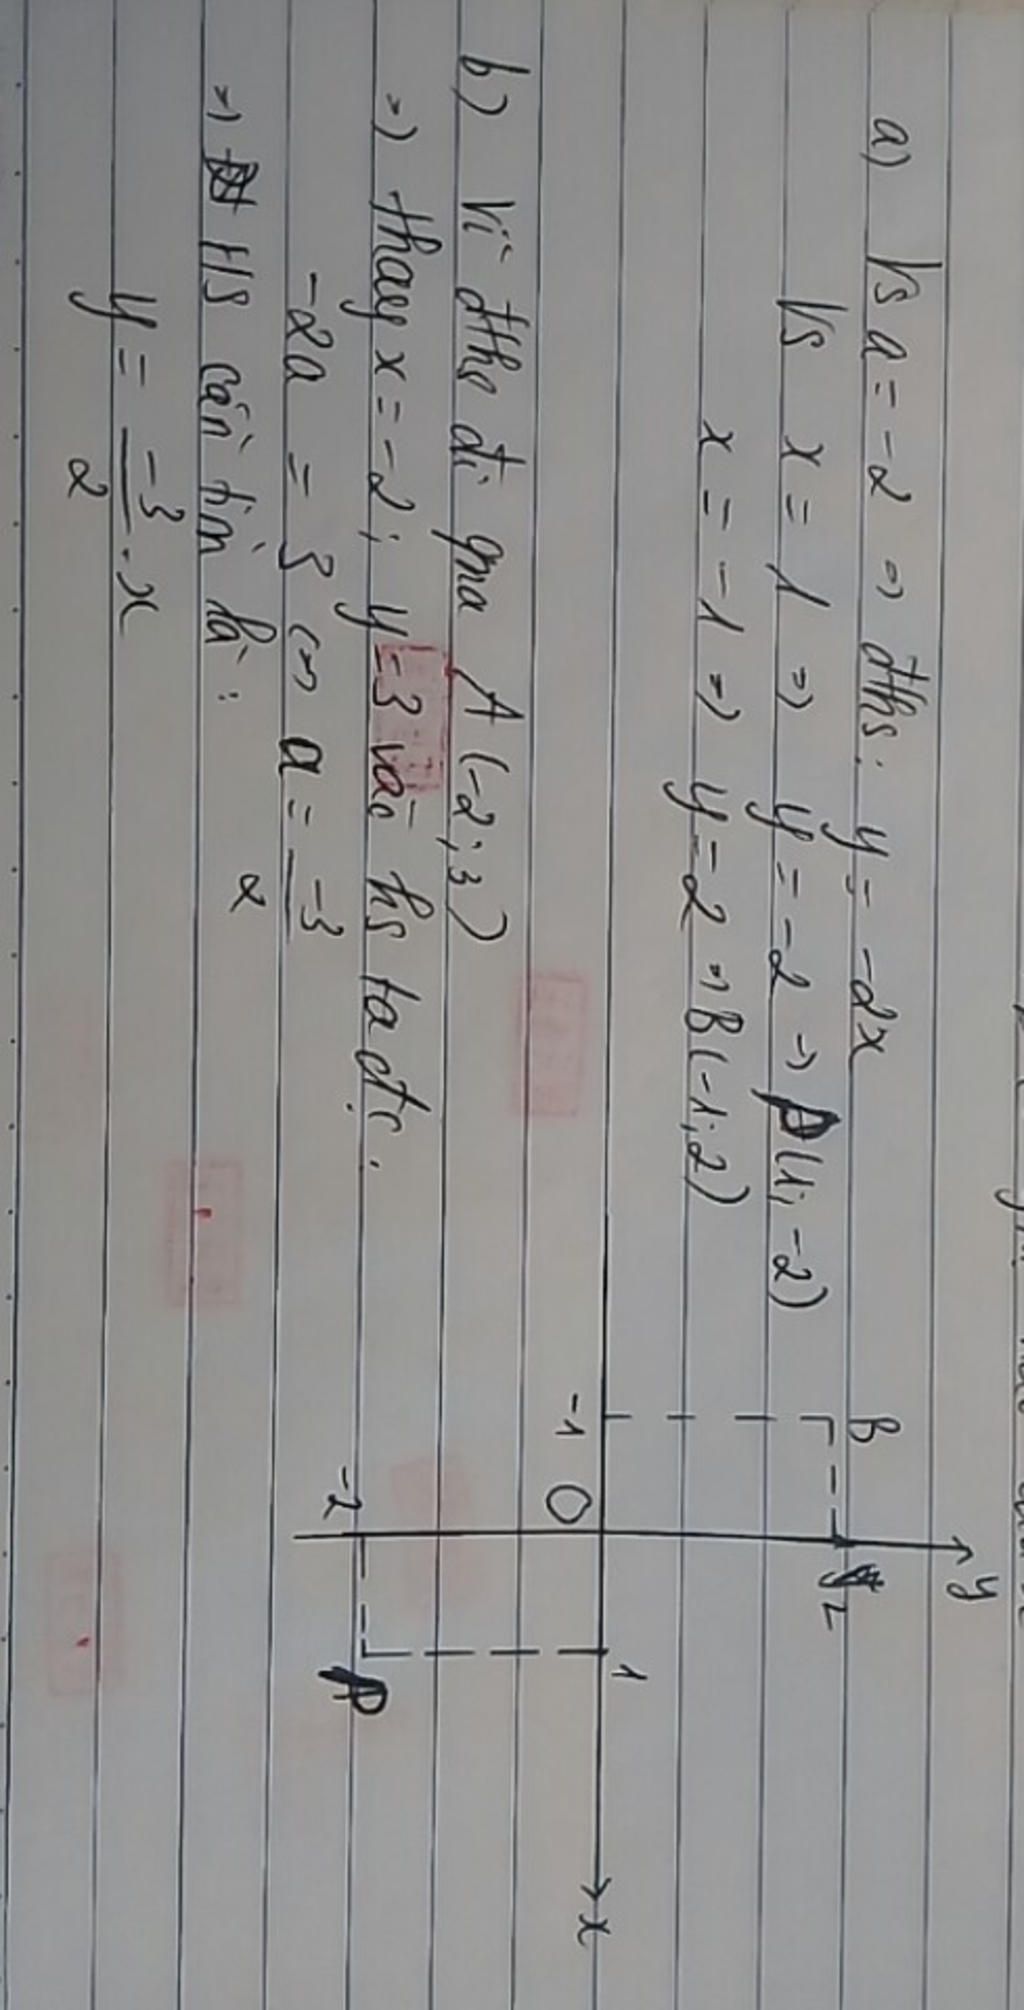 a) Vs a = -2 => đths: y = -2x
Vs x = 1 => y = -2 => D(1; -2)
x = -1 => y = 2 => B(-1; 2)
B
y
2
-1
O
1
x
-2
D
b) Vì đths đi qua A (-2; 3)
=) thay x = -2; y = 3 vào hs ta đc:
-2a = 3 <=> a = -3/2
=) Hs cần tìm là:
y = -3/2 . x